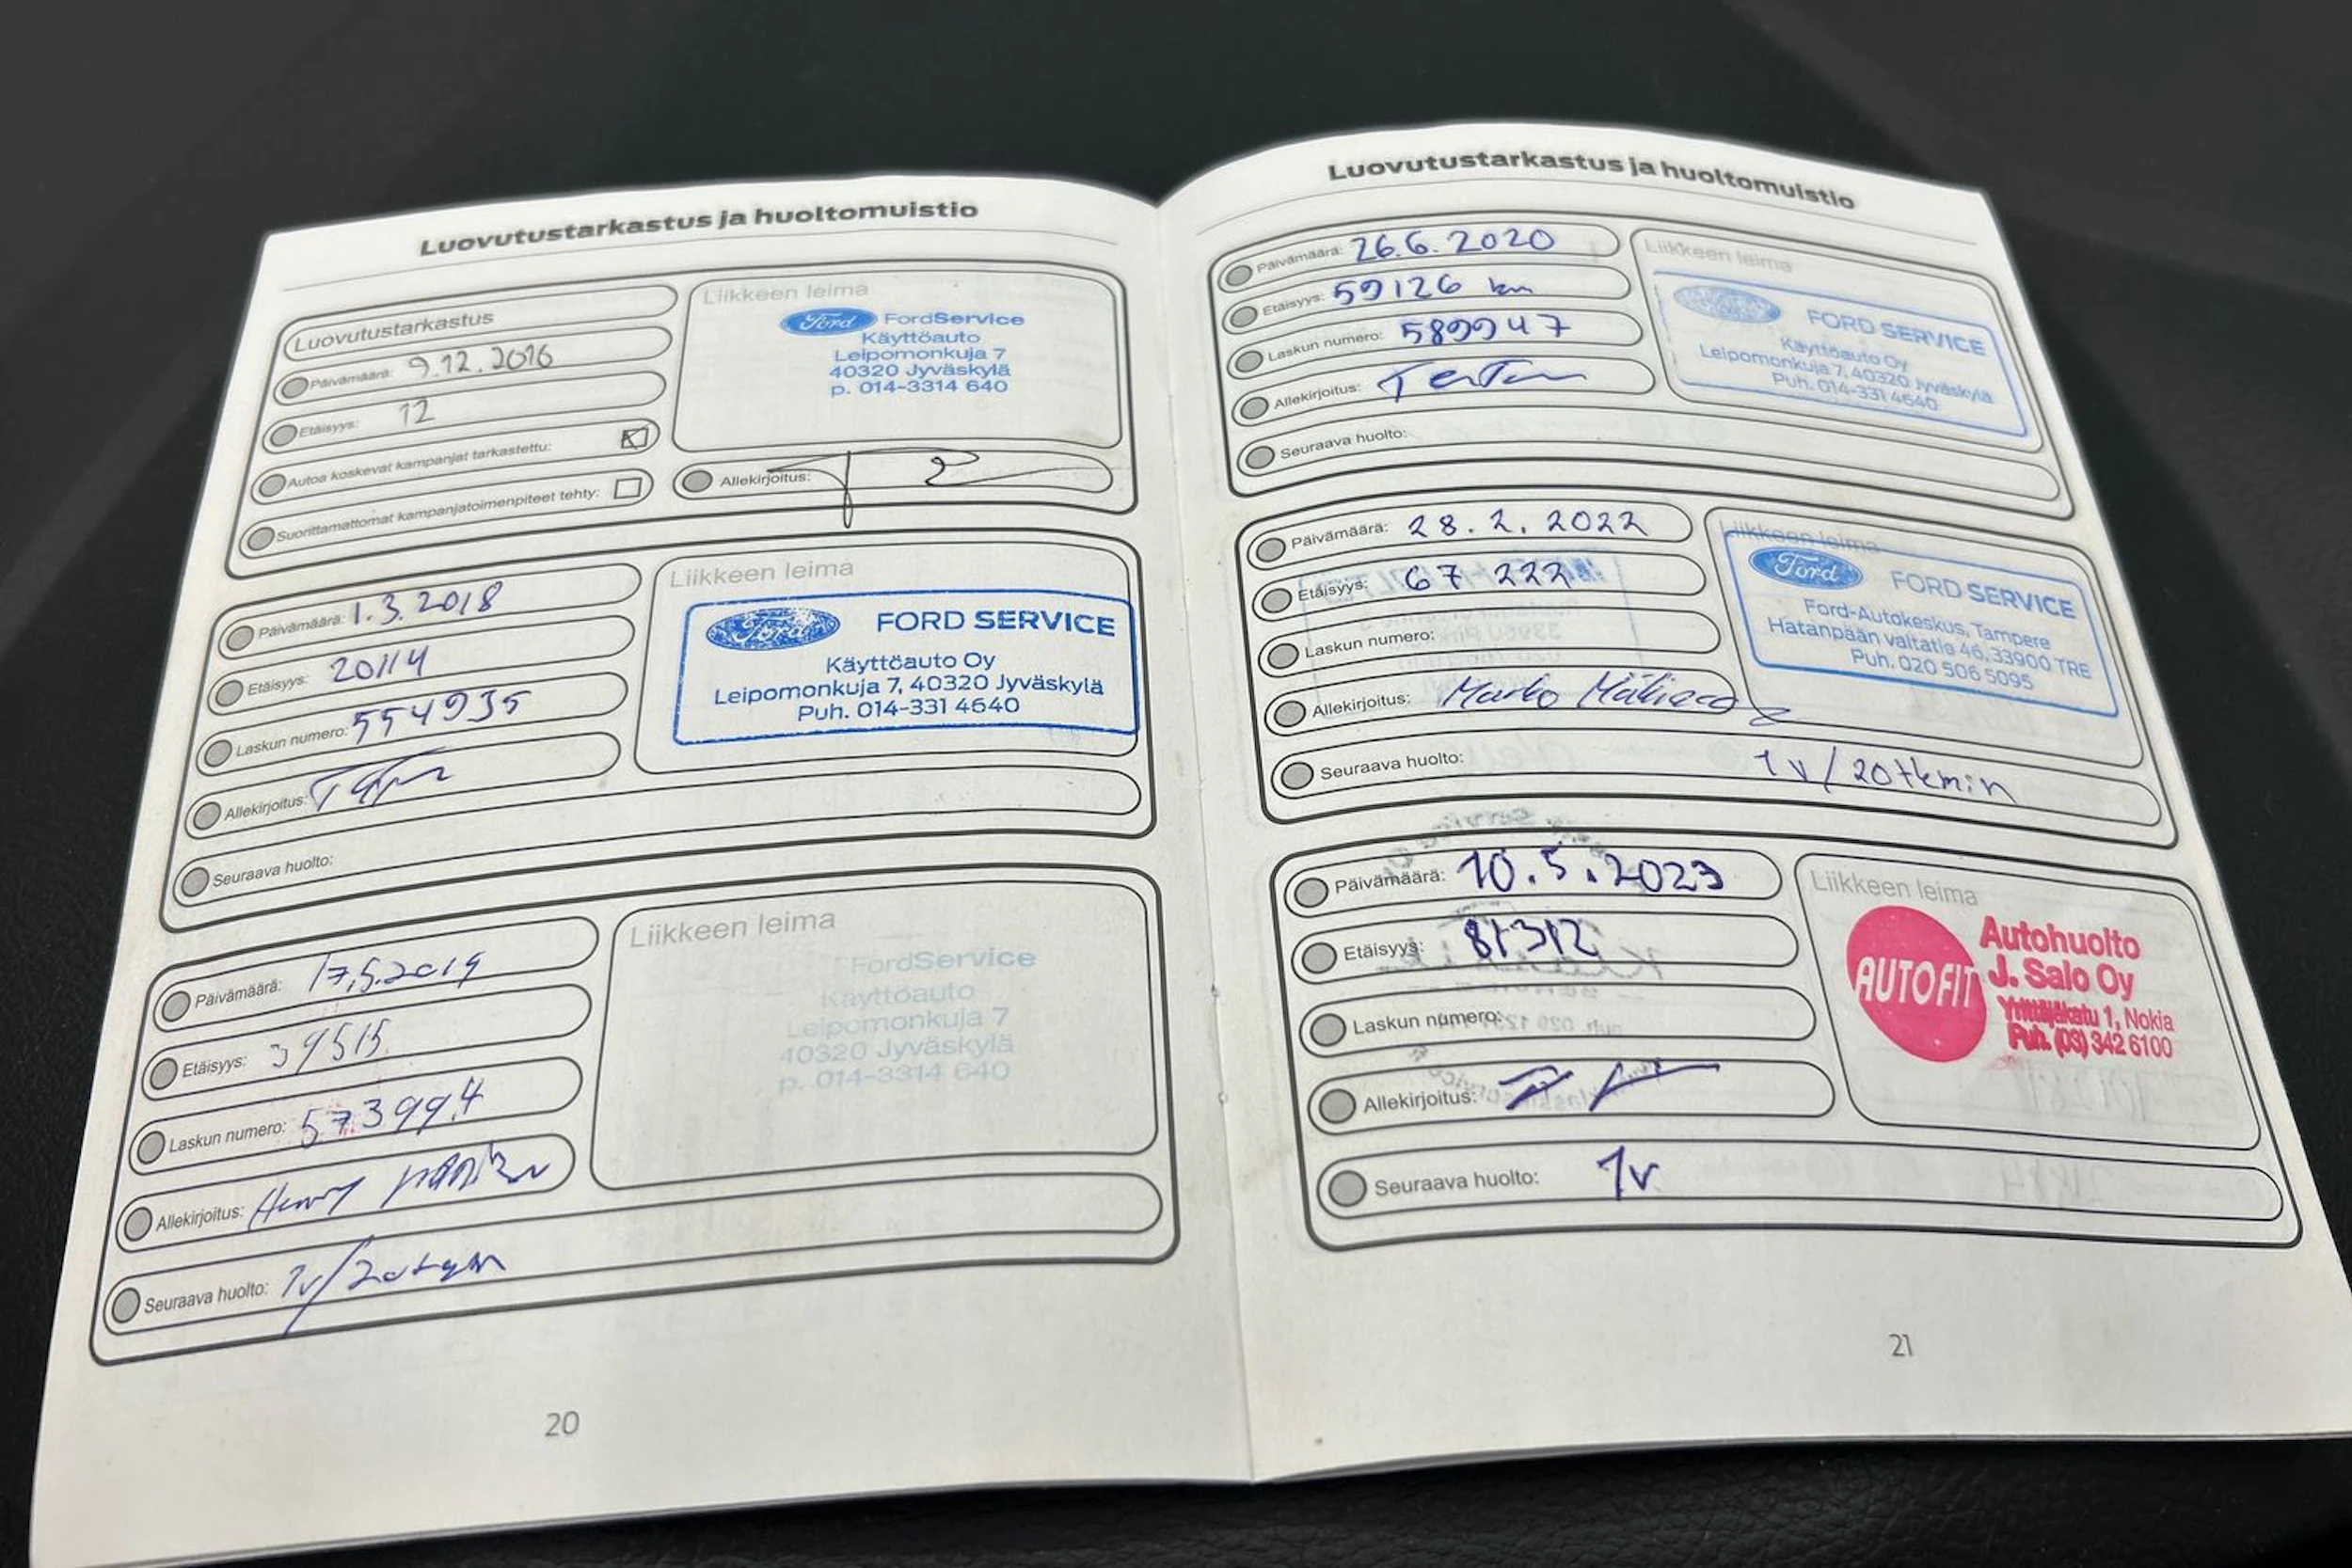 Luovutustarkastus ja huoltomuistio
Luovutustarkastus
Päivämäärä: 9.12.2016
Etäisyys: 12
Autoa koskevat kampanjat tarkastettu:
Suorittamattomat kampanjatoimenpiteet tehty:
Liikkeen leima
Ford FordService
Käyttöauto
Leipomonkuja 7
40320 Jyväskylä
p. 014-3314 640
Allekirjoitus:
Päivämäärä: 1.3.2018
Etäisyys: 20114
Laskun numero: 554935
Allekirjoitus:
Seuraava huolto:
Liikkeen leima
Ford FORD SERVICE
Käyttöauto Oy
Leipomonkuja 7, 40320 Jyväskylä
Puh. 014-331 4640
Päivämäärä: 17.5.2019
Etäisyys: 39515
Laskun numero: 573994
Allekirjoitus: Henry
Seuraava huolto: 1v/20tkm
Liikkeen leima
FordService
Käyttöauto
Leipomonkuja 7
40320 Jyväskylä
p. 014-3314 640
20
Luovutustarkastus ja huoltomuistio
Päivämäärä: 26.6.2020
Etäisyys: 59126 km
Laskun numero: 589947
Allekirjoitus:
Seuraava huolto:
Liikkeen leima
FORD SERVICE
Käyttöauto Oy
Leipomonkuja 7, 40320 Jyväskylä
Puh. 014-331 4640
Päivämäärä: 28.2.2022
Etäisyys: 67 222
Laskun numero:
Allekirjoitus: Marko
Seuraava huolto: 1v/20tkm:n
Liikkeen leima
Ford FORD SERVICE
Ford-Autokeskus, Tampere
Hatanpään valtatie 46, 33900 TRE
Puh. 020 506 5095
Päivämäärä: 10.5.2023
Etäisyys: 81312
Laskun numero:
Allekirjoitus:
Seuraava huolto: 1v
Liikkeen leima
AUTOFIT
Autohuolto
J. Salo Oy
Yrittäjäkatu 1, Nokia
Puh. (03) 342 6100
21